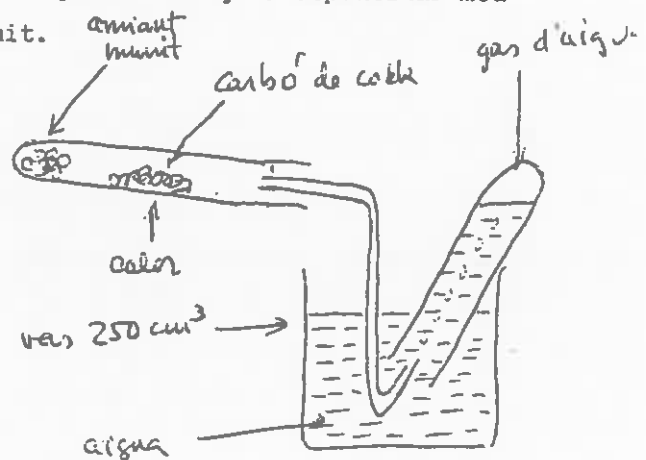 uit.
amiant
mullit
carbó de cokk
gas d'aigua
calor
vers 250 cm³
aigua